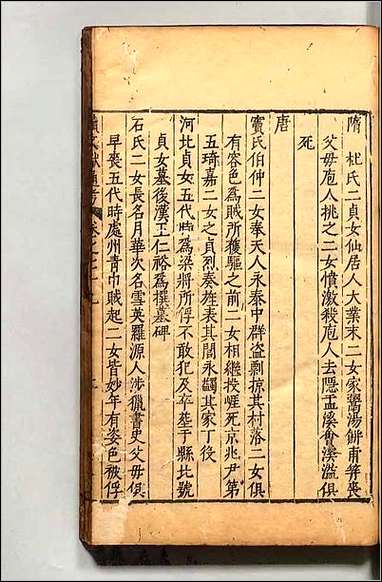 隋　杜氏二貞女仙居人大業末二女家鬻湯餅甫笄喪
父母庖人挑之二女憤激殺庖人去隱孟溪會溪溢俱
死
唐
竇氏伯仲二女奉天人永泰中群盜剽掠其村落二女俱
有容色爲賊所獲驅之前二女相繼投崖死京兆尹第
五琦嘉二女之貞烈奏旌表其閭永蠲其家丁役
河北貞女五代時爲梁將所俘不敢犯及卒塟于縣北號
貞女墓後漢王仁裕爲撰墓碑
石氏二女長名月華次名雪英羅源人涉獵書史父母俱
早喪五代時處州青巾賊起二女皆妙年有姿色被俘
續文獻通考　卷之七十九